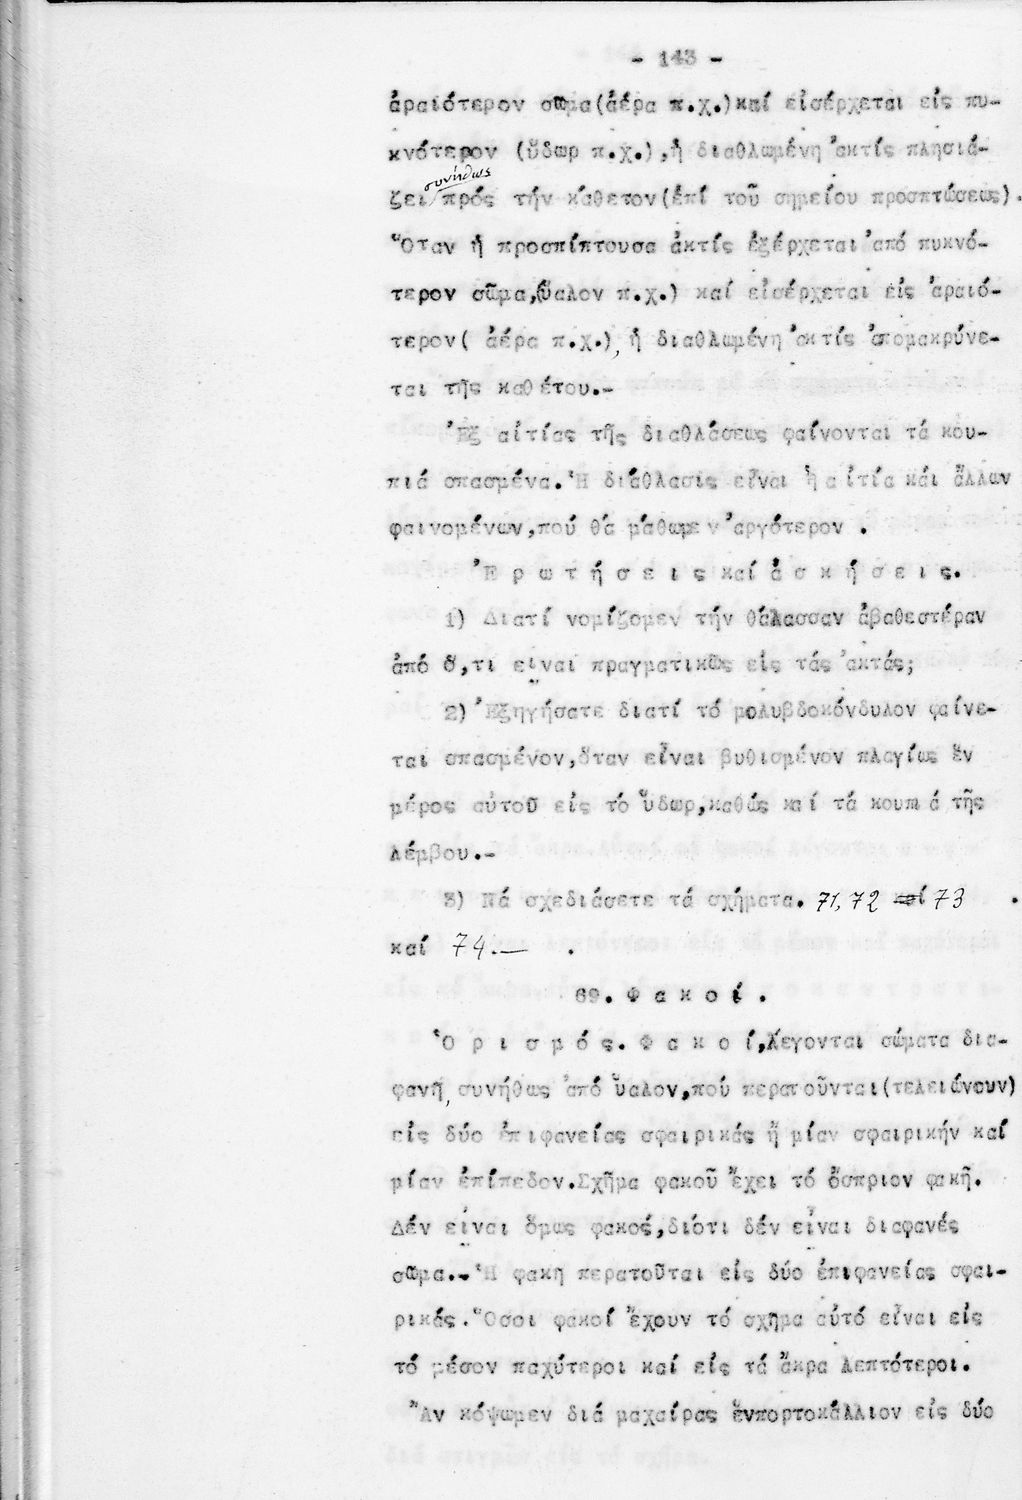 - 143 -
ἀραιότερον σῶμα(ἀέρα π.χ.)καί εἰσέρχεται εἰς πυ-
κνότερον (ὕδωρ π.χ.),ἡ διαθλωμένη ἀκτίς πλησιά-
συνήθως
ζει πρός τήν κάθετον(ἐπί τοῦ σημείου προσπτώσεως).
Ὅταν ἡ προσπίπτουσα ἀκτίς ἐξέρχεται ἀπό πυκνό-
τερον σῶμα,(ὕαλον π.χ.) καί εἰσέρχεται εἰς ἀραιό-
τερον( ἀέρα π.χ.), ἡ διαθλωμένη ἀκτίς ἀπομακρύνε-
ται τῆς καθέτου.-
Ἐξ αἰτίας τῆς διαθλάσεως φαίνονται τά κου-
πιά σπασμένα. Ἡ διάθλασις εἶναι ἡ αἰτία καί ἄλλων
φαινομένων,πού θά μάθωμεν ἀργότερον .
Ἐ ρ ω τ ή σ ε ι ς καί ἀ σ κ ή σ ε ι ς.
1) Διατί νομίζομεν τήν θάλασσαν ἀβαθεστέραν
ἀπό ὅ,τι εἶναι πραγματικῶς εἰς τάς ἀκτάς;
2) Ἐξηγήσατε διατί τό μολυβδοκόνδυλον φαίνε-
ται σπασμένον,ὅταν εἶναι βυθισμένον πλαγίως ἕν
μέρος αὐτοῦ εἰς τό ὕδωρ,καθώς καί τά κουπιά τῆς
λέμβου.-
3) Νά σχεδιάσετε τά σχήματα. 71, 72 καί 73 .
καί 74.— .
69. Φ α κ ο ί .
Ὁ ρ ι σ μ ό ς. Φ α κ ο ί,λέγονται σώματα δια-
φανῆ, συνήθως ἀπό ὕαλον,πού περατοῦνται(τελειώνουν)
εἰς δύο ἐπιφανείας σφαιρικάς ἤ μίαν σφαιρικήν καί
μίαν ἐπίπεδον.Σχῆμα φακοῦ ἔχει τό ὄσπριον φακῆ.
Δέν εἶναι ὅμως φακός,διότι δέν εἶναι διαφανές
σῶμα.- Ἡ φακῆ περατοῦται εἰς δύο ἐπιφανείας σφαι-
ρικάς. Ὅσοι φακοί ἔχουν τό σχῆμα αὐτό εἶναι εἰς
τό μέσον παχύτεροι καί εἰς τά ἄκρα λεπτότεροι.
Ἄν κόψωμεν διά μαχαίρας ἕνπορτοκάλλιον εἰς δύο